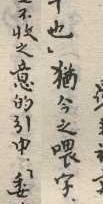 也」猶今之喂字.
不收之意的引申.「委